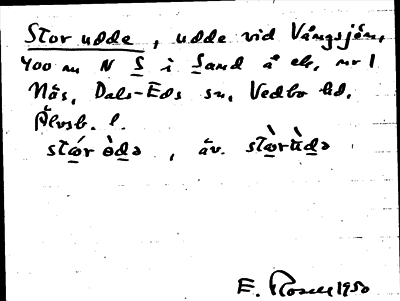 Stor udde, udde vid Vångsjön,
400 m N S i Sand å ek, nr 1
Näs, Dals-Eds sn, Vedbo hd,
Älvsb. l.
stær òdə, äv. stærùdə
E. Rosell 1950